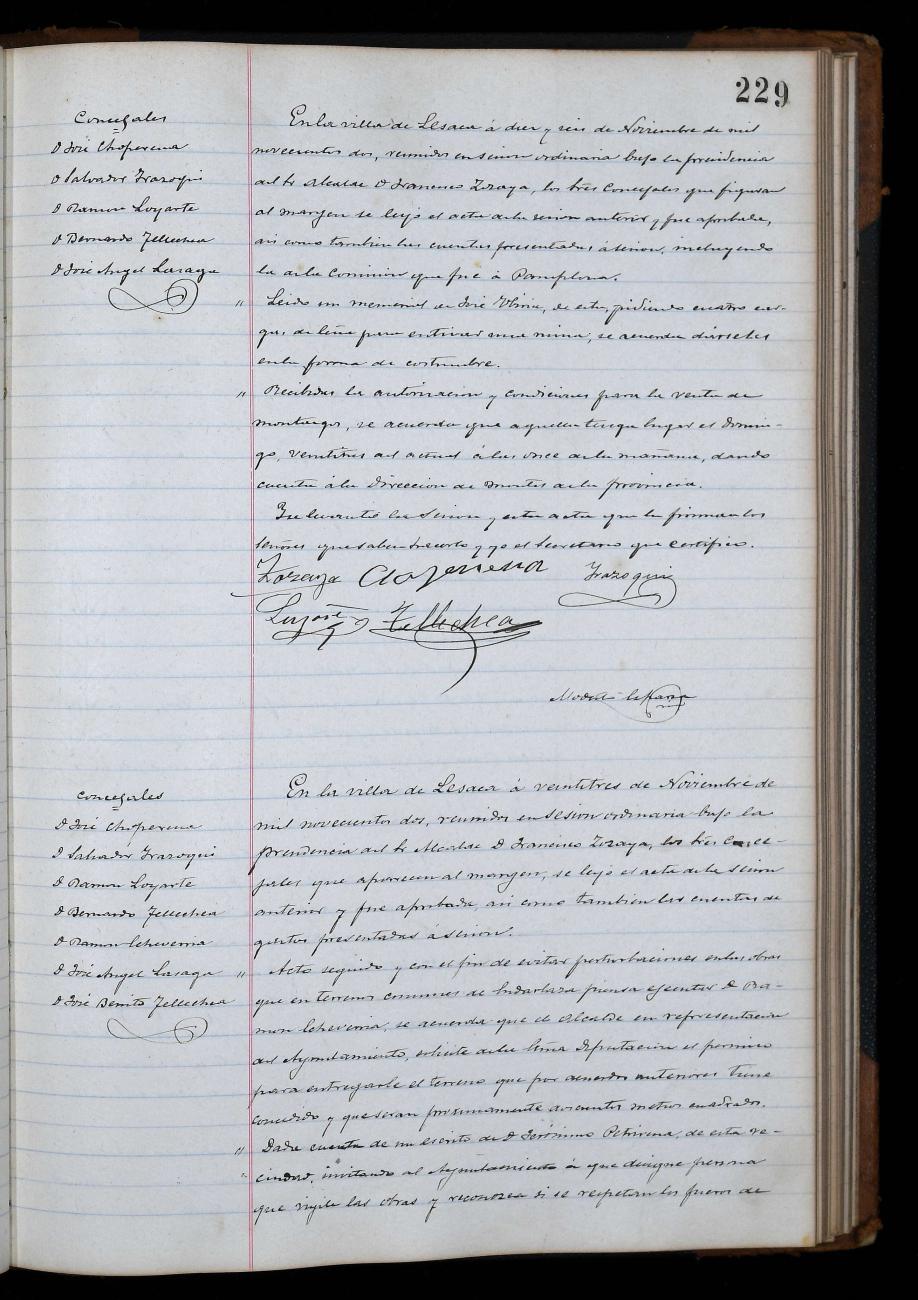 229
Concejales
D José Choperena
D Salvador Irazoqui
D Ramon Loyarte
D Bernardo Tellechea
D José Angel Lasaga
En la villa de Lesaca á diez y seis de Noviembre de mil
novecientos dos, reunidos en sesion ordinaria bajo la presidencia
del Sr Alcalde D Francisco Zozaya, los tres Concejales que figuran
al margen se leyó el acta de la sesion anterior y fue aprobada,
asi como tambien las cuentas presentadas á sesion, incluyendo
la de la Comision que fue á Pamplona.
" Leido un memorial de José de esta, pidiendo cuatro car-
gas de leña para entivar una mina, se acuerda dárselas
en la forma de costumbre.
" Recibidas la autorizacion y condiciones para la venta de
montazgos, se acuerda que aquella tenga lugar el domin-
go, veintitres del actual á las once de la mañana, dando
cuenta á la Direccion de Montes de la provincia.
Se levantó la sesion y esta acta que la firman los
señores que saben hacerlo y yo el Secretario que certifico.
Zozaya Choperena Irazoqui
Loyarte Tellechea
Modesto
Concejales
D José Choperena
D Salvador Irazoqui
D Ramon Loyarte
D Bernardo Tellechea
D Ramon Echeverria
D José Angel Lasaga
D José Benito Tellechea
En la villa de Lesaca á veintitres de Noviembre de
mil novecientos dos, reunidos en sesion ordinaria bajo la
presidencia del Sr Alcalde D Francisco Zozaya, los tres Conce-
jales que aparecen al margen, se leyó el acta de la sesion
anterior y fue aprobada, asi como tambien las cuentas de
gastos presentadas á sesion.
" Acto seguido y con el fin de evitar perturbaciones en las obras
que en terrenos comunes de Endarlaza piensa ejecutar D Ra-
mon Echeverria, se acuerda que el Alcalde en representacion
del Ayuntamiento, solicite de la Exma Diputacion el permiso
para entregarle el terreno que por acuerdos anteriores tiene
concedido y que seran proximamente doscientos metros cuadrados.
" Dada cuenta de un escrito de D Jerónimo Petrirena, de esta ve-
cindad, invitando al Ayuntamiento á que designe persona
que vigile las obras y reconozca si se respetan los fueros de